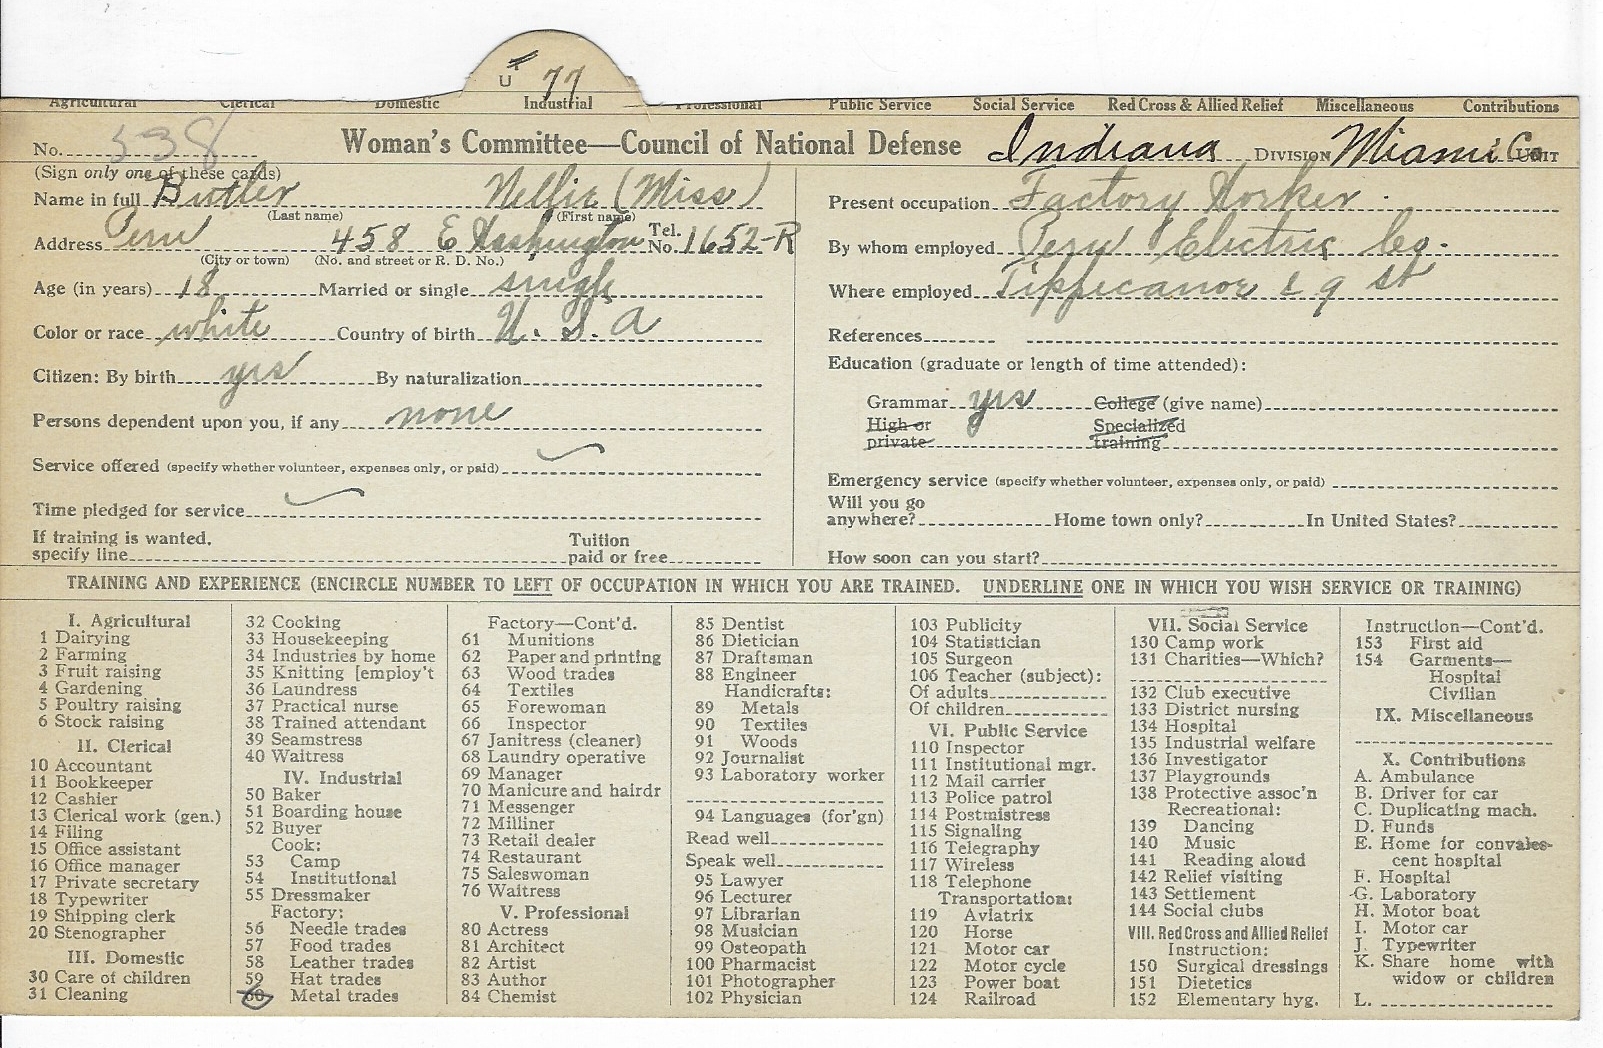 U 77
Agricultural Clerical Domestic Industrial Professional Public Service Social Service Red Cross & Allied Relief Miscellaneous Contributions
No. 538 Woman's Committee—Council of National Defense Indiana DIVISION Miami Co UNIT
(Sign only one of these cards)
Name in full Butler Nellie (Miss)
(Last name) (First name)
Address Peru 458 E Washington Tel. No. 1652-R
(City or town) (No. and street or R. D. No.)
Age (in years) 18 Married or single single
Color or race white Country of birth U. S. A
Citizen: By birth yes By naturalization
Persons dependent upon you, if any none
Service offered (specify whether volunteer, expenses only, or paid)
Time pledged for service
If training is wanted, specify line Tuition paid or free
Present occupation Factory Worker
By whom employed Peru Electric Co.
Where employed Tippicanoe & 9 St
References
Education (graduate or length of time attended):
Grammar yes College (give name)
High or private Specialized training
Emergency service (specify whether volunteer, expenses only, or paid)
Will you go anywhere? Home town only? In United States?
How soon can you start?
TRAINING AND EXPERIENCE (ENCIRCLE NUMBER TO LEFT OF OCCUPATION IN WHICH YOU ARE TRAINED. UNDERLINE ONE IN WHICH YOU WISH SERVICE OR TRAINING)
I. Agricultural
1 Dairying
2 Farming
3 Fruit raising
4 Gardening
5 Poultry raising
6 Stock raising
II. Clerical
10 Accountant
11 Bookkeeper
12 Cashier
13 Clerical work (gen.)
14 Filing
15 Office assistant
16 Office manager
17 Private secretary
18 Typewriter
19 Shipping clerk
20 Stenographer
III. Domestic
30 Care of children
31 Cleaning
32 Cooking
33 Housekeeping
34 Industries by home
35 Knitting [employ't
36 Laundress
37 Practical nurse
38 Trained attendant
39 Seamstress
40 Waitress
IV. Industrial
50 Baker
51 Boarding house
52 Buyer
Cook:
53 Camp
54 Institutional
55 Dressmaker
Factory:
56 Needle trades
57 Food trades
58 Leather trades
59 Hat trades
60 Metal trades
Factory—Cont'd.
61 Munitions
62 Paper and printing
63 Wood trades
64 Textiles
65 Forewoman
66 Inspector
67 Janitress (cleaner)
68 Laundry operative
69 Manager
70 Manicure and hairdr
71 Messenger
72 Milliner
73 Retail dealer
74 Restaurant
75 Saleswoman
76 Waitress
V. Professional
80 Actress
81 Architect
82 Artist
83 Author
84 Chemist
85 Dentist
86 Dietician
87 Draftsman
88 Engineer
Handicrafts:
89 Metals
90 Textiles
91 Woods
92 Journalist
93 Laboratory worker
94 Languages (for'gn)
Read well
Speak well
95 Lawyer
96 Lecturer
97 Librarian
98 Musician
99 Osteopath
100 Pharmacist
101 Photographer
102 Physician
103 Publicity
104 Statistician
105 Surgeon
106 Teacher (subject):
Of adults
Of children
VI. Public Service
110 Inspector
111 Institutional mgr.
112 Mail carrier
113 Police patrol
114 Postmistress
115 Signaling
116 Telegraphy
117 Wireless
118 Telephone
Transportation:
119 Aviatrix
120 Horse
121 Motor car
122 Motor cycle
123 Power boat
124 Railroad
VII. Social Service
130 Camp work
131 Charities—Which?
132 Club executive
133 District nursing
134 Hospital
135 Industrial welfare
136 Investigator
137 Playgrounds
138 Protective assoc'n
Recreational:
139 Dancing
140 Music
141 Reading aloud
142 Relief visiting
143 Settlement
144 Social clubs
VIII. Red Cross and Allied Relief
Instruction:
150 Surgical dressings
151 Dietetics
152 Elementary hyg.
Instruction—Cont'd.
153 First aid
154 Garments—
Hospital
Civilian
IX. Miscellaneous
X. Contributions
A. Ambulance
B. Driver for car
C. Duplicating mach.
D. Funds
E. Home for convales-
cent hospital
F. Hospital
G. Laboratory
H. Motor boat
I. Motor car
J. Typewriter
K. Share home with
widow or children
L.